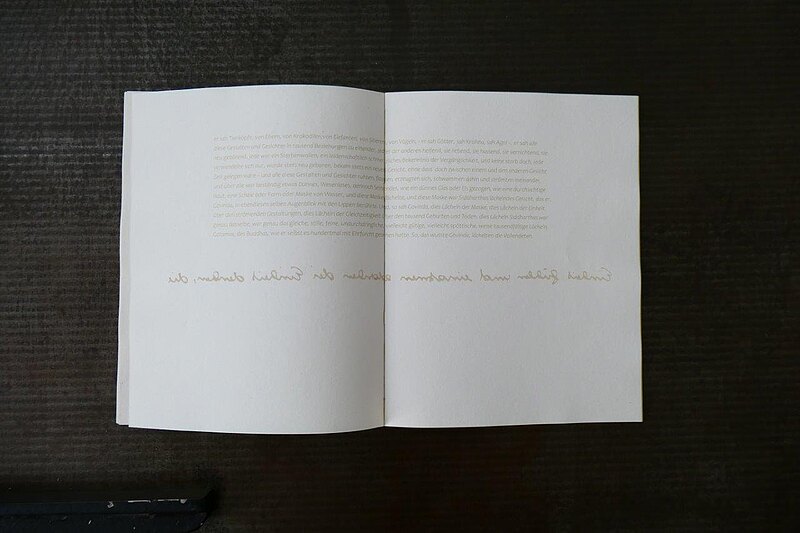 er sah Tierköpfe, von Ebern, von Krokodilen, von Elefanten, von Stieren, von Vögeln – er sah Götter, sah Krishna, sah Agni – er sah alle
diese Gestalten und Gesichter in tausend Beziehungen zu einander, jede der anderen helfend, sie liebend, sie hassend, sie vernichtend, sie
neu gebärend, jede war ein Sterbenwollen, ein leidenschaftlich schmerzliches Bekenntnis der Vergänglichkeit, und keine starb doch, jede
verwandelte sich nur, wurde stets neu geboren, bekam stets ein neues Gesicht, ohne dass doch zwischen einem und dem anderen Gesicht
Zeit gelegen wäre – und alle diese Gestalten und Gesichter ruhten, flossen, erzeugten sich, schwammen dahin und strömten ineinander,
und über alle war beständig etwas Dünnes, Wesenloses, dennoch Seiendes, wie ein dünnes Glas oder Eis gezogen, wie eine durchsichtige
Haut, eine Schale oder Form oder Maske von Wasser, und diese Maske lächelte, und diese Maske war Siddharthas lächelndes Gesicht, das er,
Govinda, in eben diesem selben Augenblick mit den Lippen berührte. Und, so sah Govinda, dies Lächeln der Maske, dies Lächeln der Einheit
über den strömenden Gestaltungen, dies Lächeln der Gleichzeitigkeit über den tausend Geburten und Toden, dies Lächeln Siddharthas war
genau dasselbe, war genau das gleiche, stille, feine, undurchdringliche, vielleicht gütige, vielleicht spöttische, weise, tausendfältige Lächeln
Gotamas, des Buddhas, wie er selbst es hundertmal mit Ehrfurcht gesehen hatte. So, das wusste Govinda, lächelten die Vollendeten.
Einheit fühlen und einatmen der Einheit denken, die